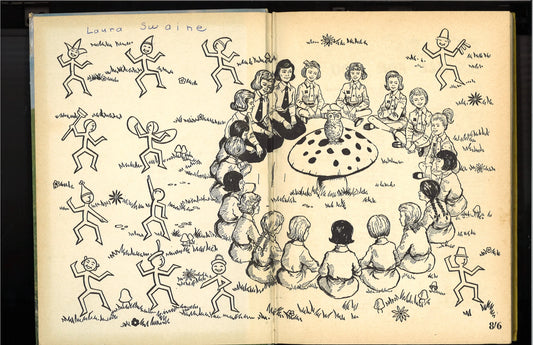 Laura Swaine
8/6